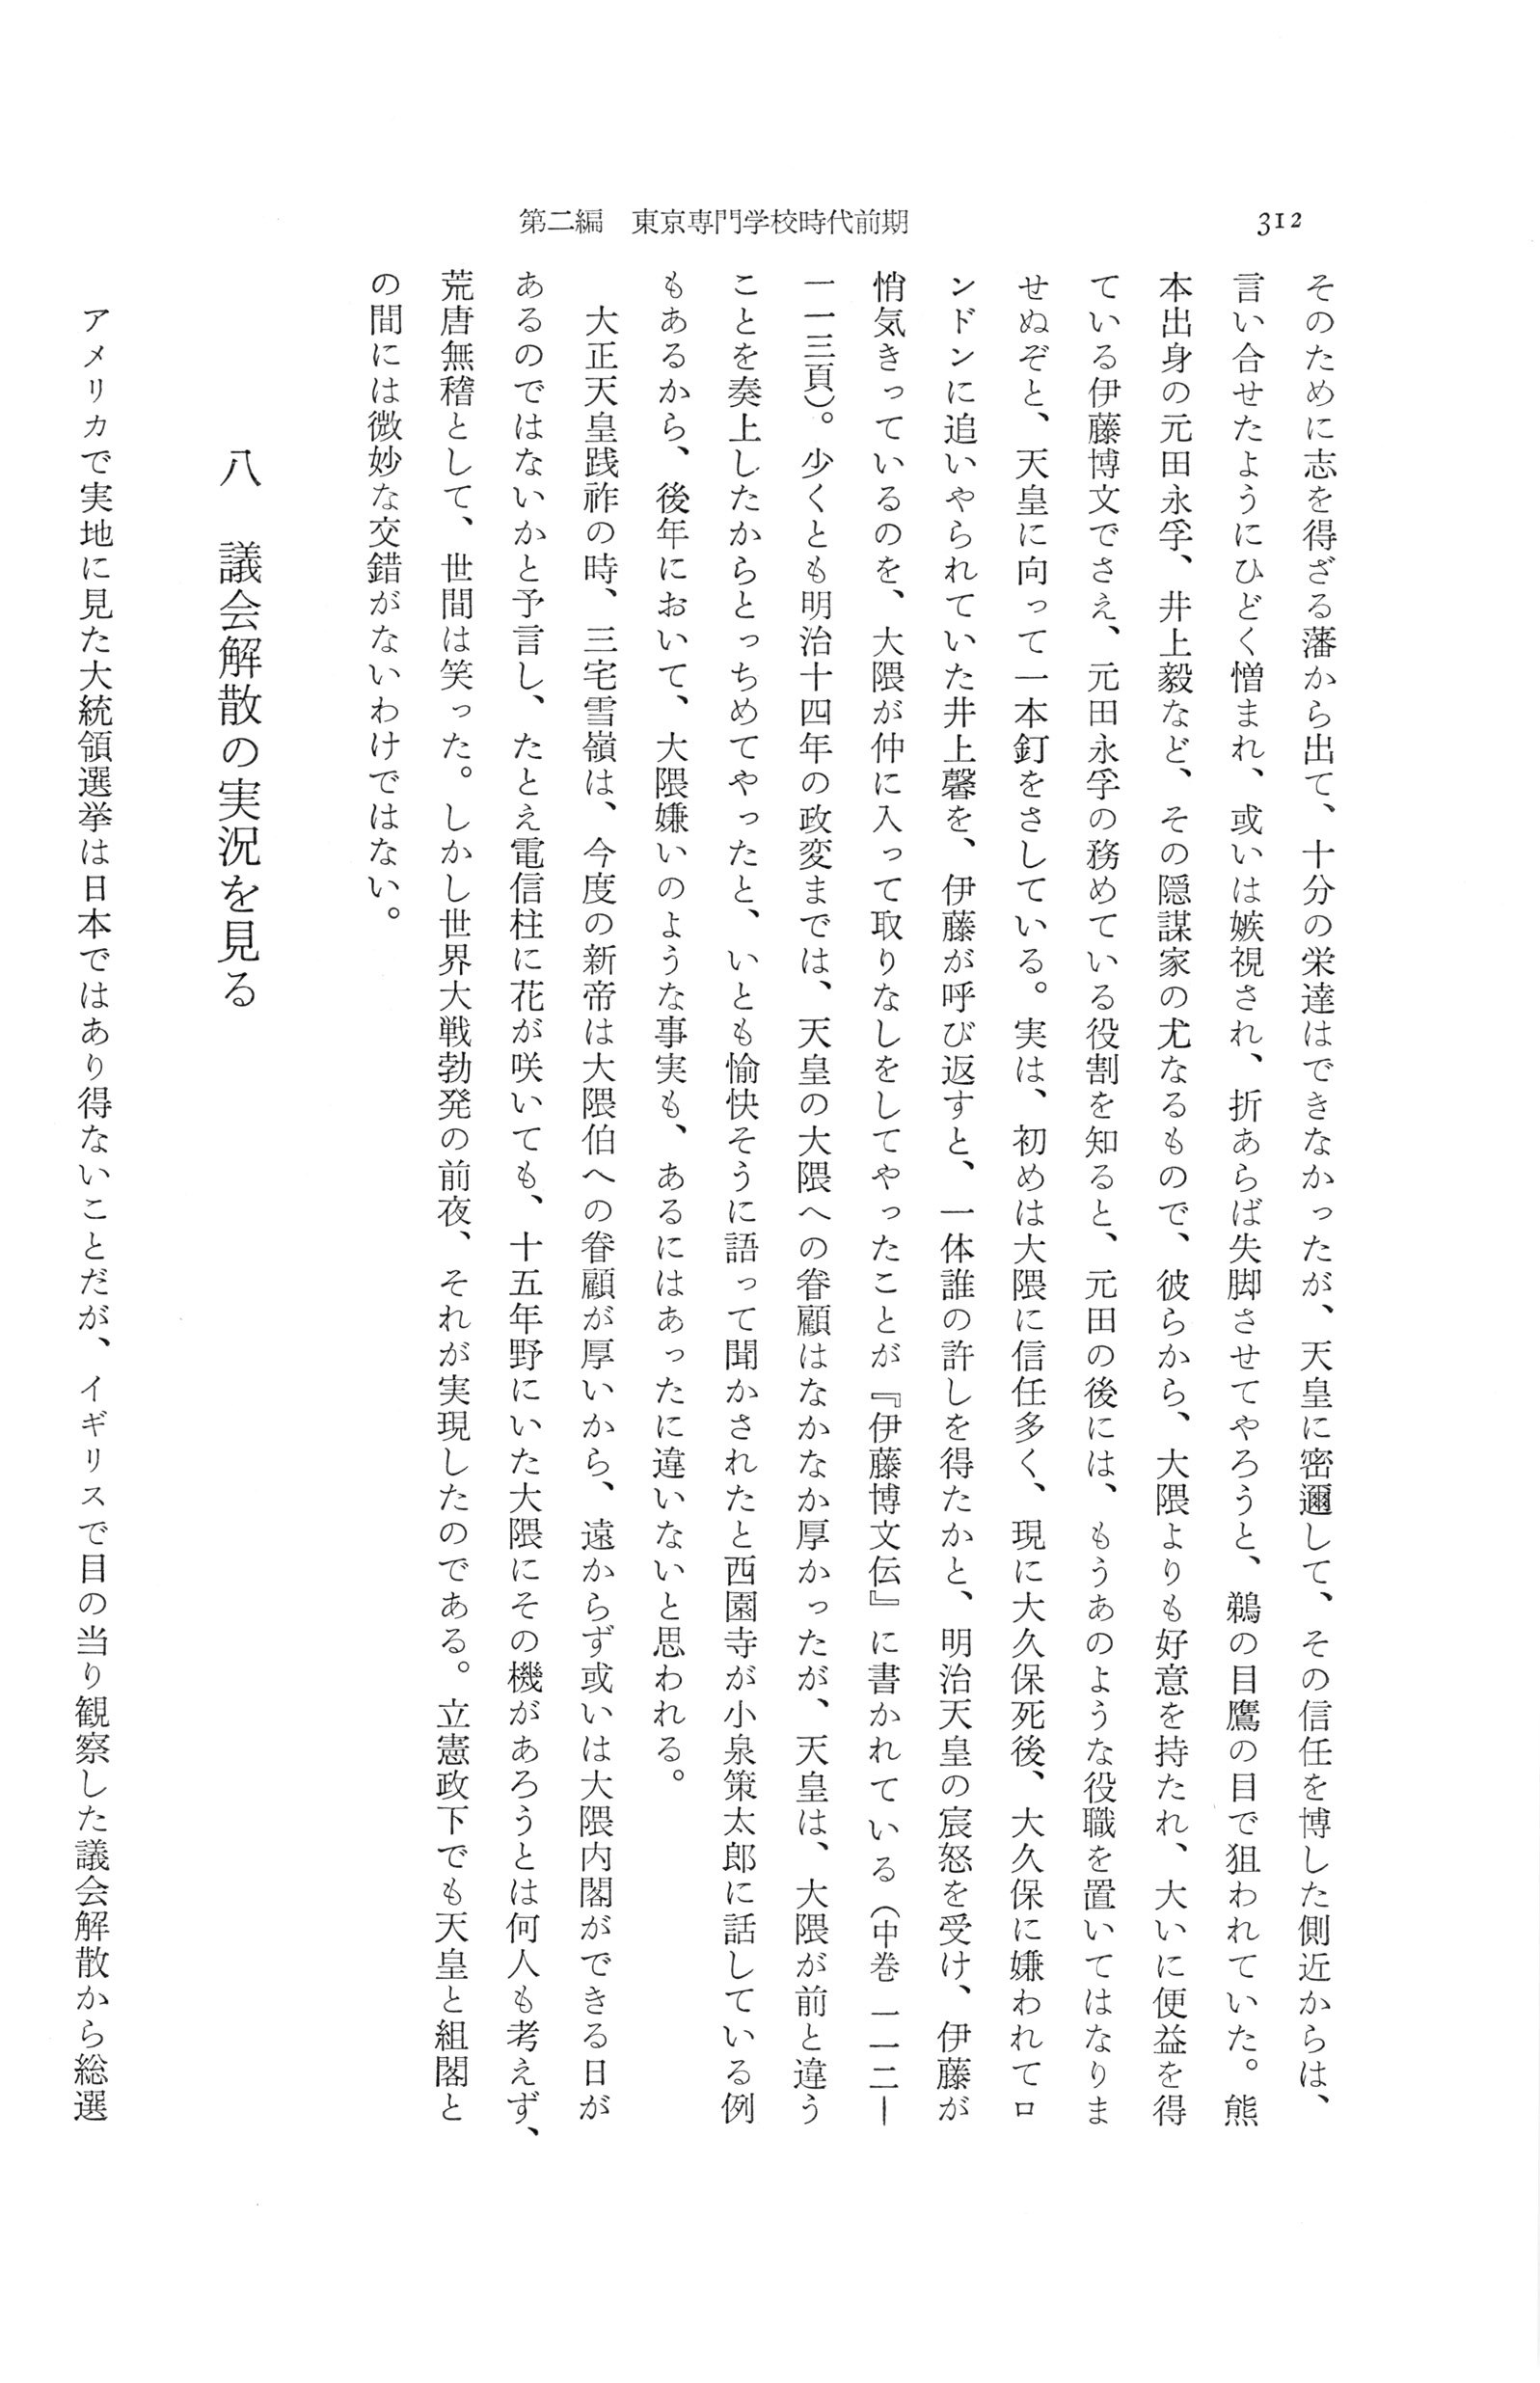 第二編　東京専門学校時代前期
312
そのために志を得ざる藩から出て、十分の栄達はできなかったが、天皇に密邇して、その信任を博した側近からは、
言い合せたようにひどく憎まれ、或いは嫉視され、折あらば失脚させてやろうと、鵜の目鷹の目で狙われていた。熊
本出身の元田永孚、井上毅など、その隠謀家の尤なるもので、彼らから、大隈よりも好意を持たれ、大いに便益を得
ている伊藤博文でさえ、元田永孚の務めている役割を知ると、元田の後には、もうあのような役職を置いてはなりま
せぬぞと、天皇に向って一本釘をさしている。実は、初めは大隈に信任多く、現に大久保死後、大久保に嫌われてロ
ンドンに追いやられていた井上馨を、伊藤が呼び返すと、一体誰の許しを得たかと、明治天皇の宸怒を受け、伊藤が
悄気きっているのを、大隈が仲に入って取りなしをしてやったことが『伊藤博文伝』に書かれている（中巻 一一二―
一一三頁）。少くとも明治十四年の政変までは、天皇の大隈への眷顧はなかなか厚かったが、天皇は、大隈が前と違う
ことを奏上したからとっちめてやったと、いとも愉快そうに語って聞かされたと西園寺が小泉策太郎に話している例
もあるから、後年において、大隈嫌いのような事実も、あるにはあったに違いないと思われる。
大正天皇践祚の時、三宅雪嶺は、今度の新帝は大隈伯への眷顧が厚いから、遠からず或いは大隈内閣ができる日が
あるのではないかと予言し、たとえ電信柱に花が咲いても、十五年野にいた大隈にその機があろうとは何人も考えず、
荒唐無稽として、世間は笑った。しかし世界大戦勃発の前夜、それが実現したのである。立憲政下でも天皇と組閣と
の間には微妙な交錯がないわけではない。
八　議会解散の実況を見る
アメリカで実地に見た大統領選挙は日本ではあり得ないことだが、イギリスで目の当り観察した議会解散から総選